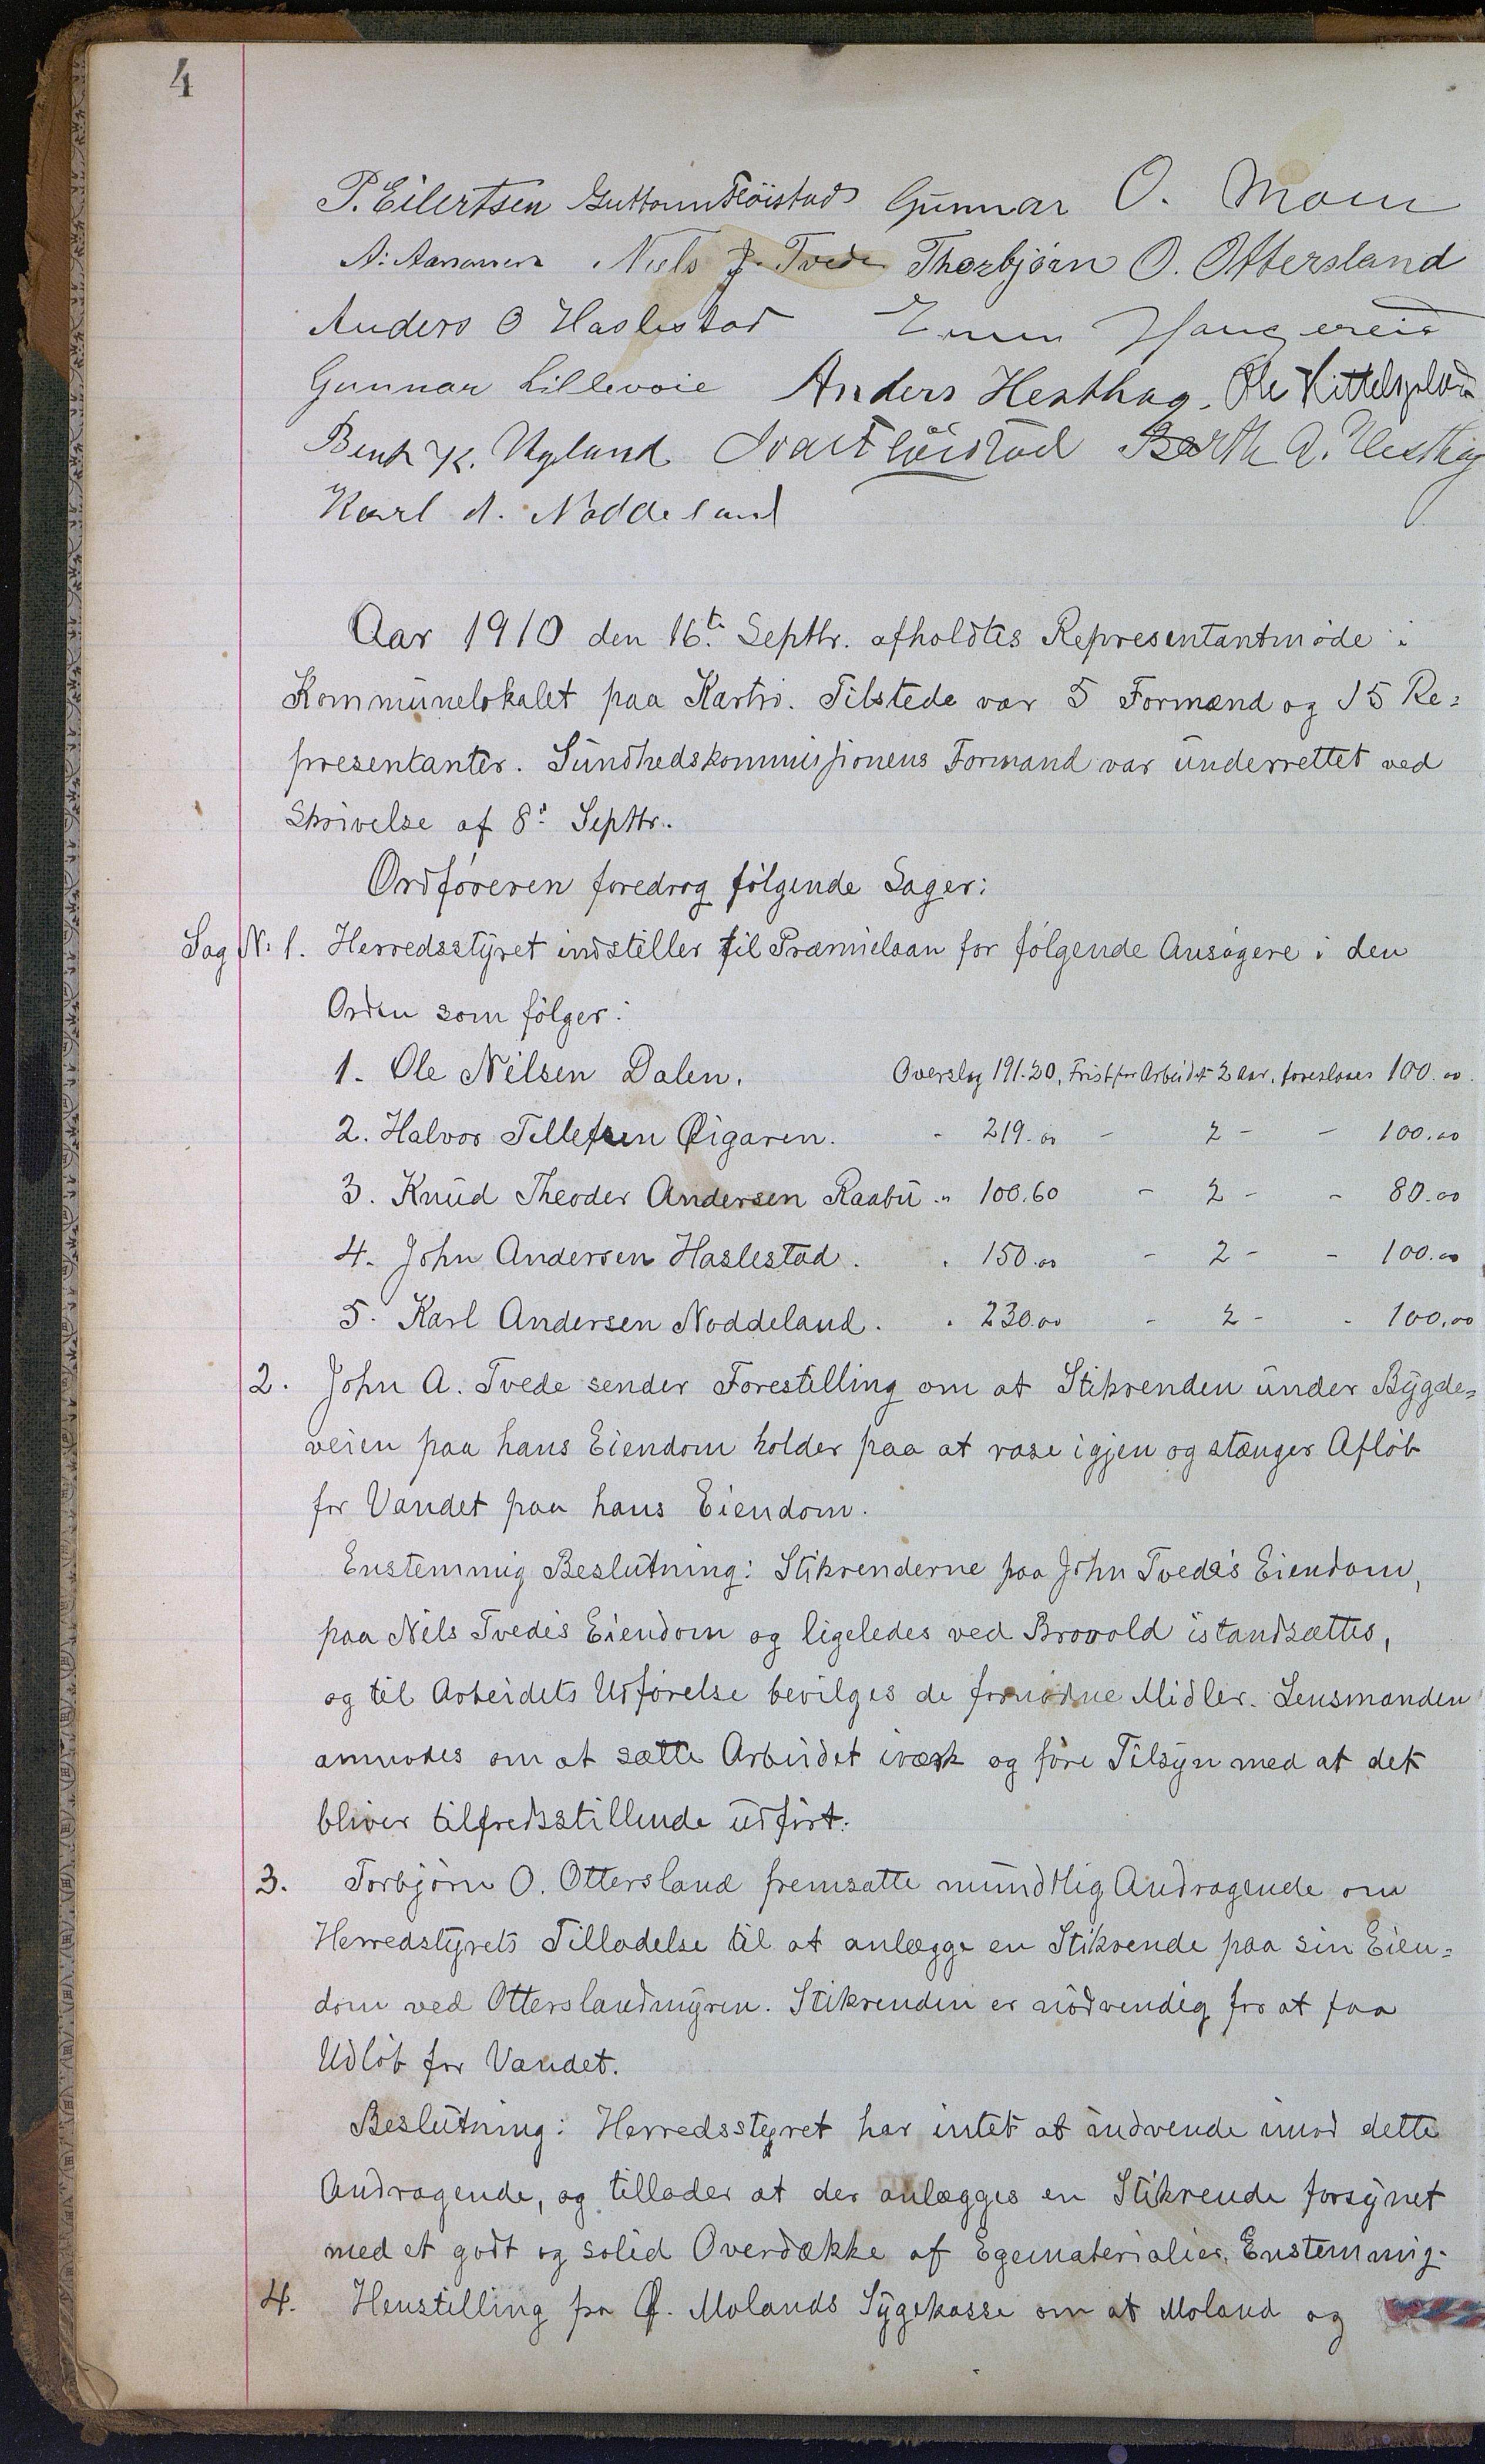 4
P. Eilertsen Guttorm Fløistad Gunnar O. Moen
A. Aanonsen Niels J. Tvede Thorbjørn O. Ottersland
Anders O Haslestad Haugereid
Gunnar Lillevoie Anders Hesthag. Ole Kittelsplad
Bent K. Ugland Ivar Fløistad Berth A. Hesthag
Karl A. Noddeland
Aar 1910 den 16de Septbr. afholdtes Representantmøde i
Kommunelokalet paa Kartro. Tilstede var 5 Formænd og 15 Re=
presentanter. Sundhedskommissionens Formand var underrettet ved
Skrivelse af 8de Septbr.
Ordføreren foredrog følgende Sager:
Sag N: 1. Herredsstyret indstiller til Præmielaan for følgende Ansøgere i den
Orden som følger:
1. Ole Nilsen Dalen. Overslag 191.20, Frist for Arbeidet 2 Aar, foreslaaes 100.00.
2. Halvor Tellefsen Øigaren. - 219.00 - 2 - - 100.00
3. Knud Theodor Andersen Raabu " 100.60 - 2 - - 80.00
4. John Andersen Haslestad. . 150.00 - 2 - - 100.00
5. Karl Andersen Noddeland. . 230.00 - 2 - - 100.00
2. John A. Tvede sender Forestilling om at Stikrenden under Bygde=
veien paa hans Eiendom holder paa at rase igjen og stænger Afløb
for Vandet paa hans Eiendom.
Enstemmig Beslutning: Stikrenderne paa John Tvedes Eiendom,
paa Nils Tvedes Eiendom og ligeledes ved Brovold istandsættes,
og til Arbeidets Udførelse bevilges de fornødne Midler. Lensmanden
anmodes om at sætte Arbeidet iværk og føre Tilsyn med at det
bliver tilfredsstillende udført.
3. Torbjørn O. Ottersland fremsatte mundtlig Andragende om
Herredstyrets Tilladelse til at anlægge en Stikrende paa sin Eien=
dom ved Otterslandmyren. Stikrenden er nødvendig for at faa
Udløb for Vandet.
Beslutning: Herredsstyret har intet at indvende imod dette
Andragende, og tillader at der anlægges en Stikrende forsynet
med et godt og solid Overdække af Egematerialier. Enstemmig.
4. Henstilling fra Ø. Molands Sygekasse om at Moland og